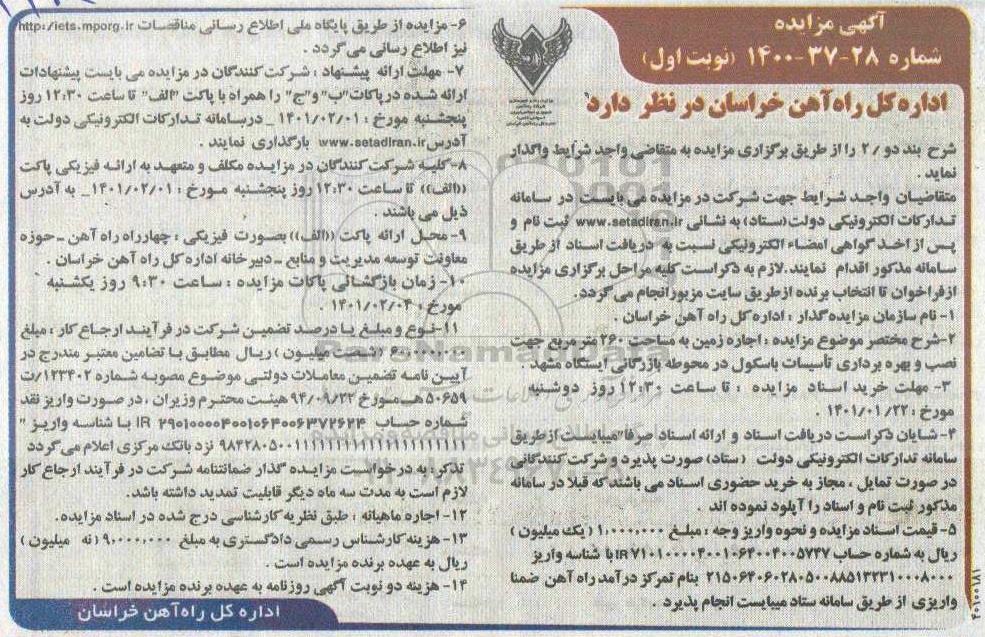 آگهی مزایده
شماره ۲۸-۳۷-۱۴۰۰ (نوبت اول)
اداره کل راه آهن خراسان در نظر دارد
شرح بند دو /۲ را از طریق برگزاری مزایده به متقاضی واجد شرایط واگذار
نماید .
متقاضیان واجد شرایط جهت شرکت در مزایده می بایست در سامانه
تدارکات الکترونیکی دولت (ستاد) به نشانی www.setadiran.ir ثبت نام و
پس از اخذ گواهی امضاء الکترونیکی نسبت به دریافت اسناد از طریق
سامانه مذکور اقدام نمایند. لازم به ذکر است کلیه مراحل برگزاری مزایده
از فراخوان تا انتخاب برنده از طریق سایت مزبور انجام می گردد.
۱- نام سازمان مزایده گذار : اداره کل راه آهن خراسان .
۲-شرح مختصر موضوع مزایده : اجاره زمین به مساحت ۲۶۰ متر مربع جهت
نصب و بهره برداری تأسیسات باسکول در محوطه بازرگانی ایستگاه مشهد .
۳- مهلت خرید اسناد مزایده : تا ساعت ۱۲:۳۰ روز دوشنبه
مورخ : ۱۴۰۱/۰۱/۲۲ .
۴- شایان ذکر است دریافت اسناد و ارائه اسناد صرفا" میبایست از طریق
سامانه تدارکات الکترونیکی دولت (ستاد) صورت پذیرد و شرکت کنندگانی
در صورت تمایل ، مجاز به خرید حضوری اسناد می باشند که قبلا در سامانه
مذکور ثبت نام و اسناد را آپلود نموده اند .
۵- قیمت اسناد مزایده و نحوه واریز وجه : مبلغ ۱،۰۰۰،۰۰۰ (یک میلیون)
ریال به شماره حساب IR۷۱۰۱۰۰۰۰۴۰۰۱۰۶۴۰۰۴۰۰۵۷۴۷ با شناسه واریز
۲۱۵۰۶۴۰۶۰۲۸۰۵۰۰۸۸۵۱۳۲۳۱۰۰۰۸۰۰۰ بنام تمرکز درآمد راه آهن ضمنا
واریزی از طریق سامانه ستاد میبایست انجام پذیرد .
۶- مزایده از طریق پایگاه ملی اطلاع رسانی مناقصات http://iets.mporg.ir
نیز اطلاع رسانی می گردد .
۷- مهلت ارائه پیشنهاد : شرکت کنندگان در مزایده می بایست پیشنهادات
ارائه شده در پاکات "ب" و "ج" را همراه با پاکت "الف" تا ساعت ۱۲:۳۰ روز
پنجشنبه مورخ : ۱۴۰۱/۰۲/۰۱ درسامانه تدارکات الکترونیکی دولت به
آدرس www.setadiran.ir بارگذاری نمایند .
۸- کلیه شرکت کنندگان در مزایده مکلف و متعهد به ارائه فیزیکی پاکت
((الف)) تا ساعت ۱۲:۳۰ روز پنجشنبه مورخ : ۱۴۰۱/۰۲/۰۱_ به آدرس
ذیل می باشند .
۹- محل ارائه پاکت ((الف)) بصورت فیزیکی : چهارراه راه آهن - حوزه
معاونت توسعه مدیریت و منابع - دبیرخانه اداره کل راه آهن خراسان .
۱۰- زمان بازگشائی پاکات مزایده : ساعت ۹:۳۰ روز یکشنبه
مورخ : ۱۴۰۱/۰۲/۰۴ .
۱۱- نوع و مبلغ یا درصد تضمین شرکت در فرآیند ارجاع کار : مبلغ
۶۰،۰۰۰،۰۰۰ (شصت میلیون) ریال مطابق با تضامین معتبر مندرج در
آیین نامه تضمین معاملات دولتی موضوع مصوبه شماره ۱۲۳۴۰۲/ت
۵۰۶۵۹هـ مورخ ۹۴/۰۹/۲۲ هیئت محترم وزیران ، در صورت واریز نقد
شماره حساب IR ۲۹۰۱۰۰۰۰۴۰۰۱۰۶۴۰۰۶۳۷۲۶۲۴ با شناسه واریز "
نزد بانک مرکزی اعلام می گردد
تذکر : به درخواست مزایده گذار ضمانتنامه شرکت در فرآیند ارجاع کار
لازم است به مدت سه ماه دیگر قابلیت تمدید داشته باشد.
۱۲- اجاره ماهیانه : طبق نظریه کارشناسی درج شده در اسناد مزایده.
۱۳- هزینه کارشناس رسمی دادگستری به مبلغ ۹،۰۰۰،۰۰۰ (نه میلیون)
ریال به عهده برنده مزایده است .
۱۴- هزینه دو نوبت آگهی روزنامه به عهده برنده مزایده است .
اداره کل راه آهن خراسان
۴۰۱۰۰۱۸۱